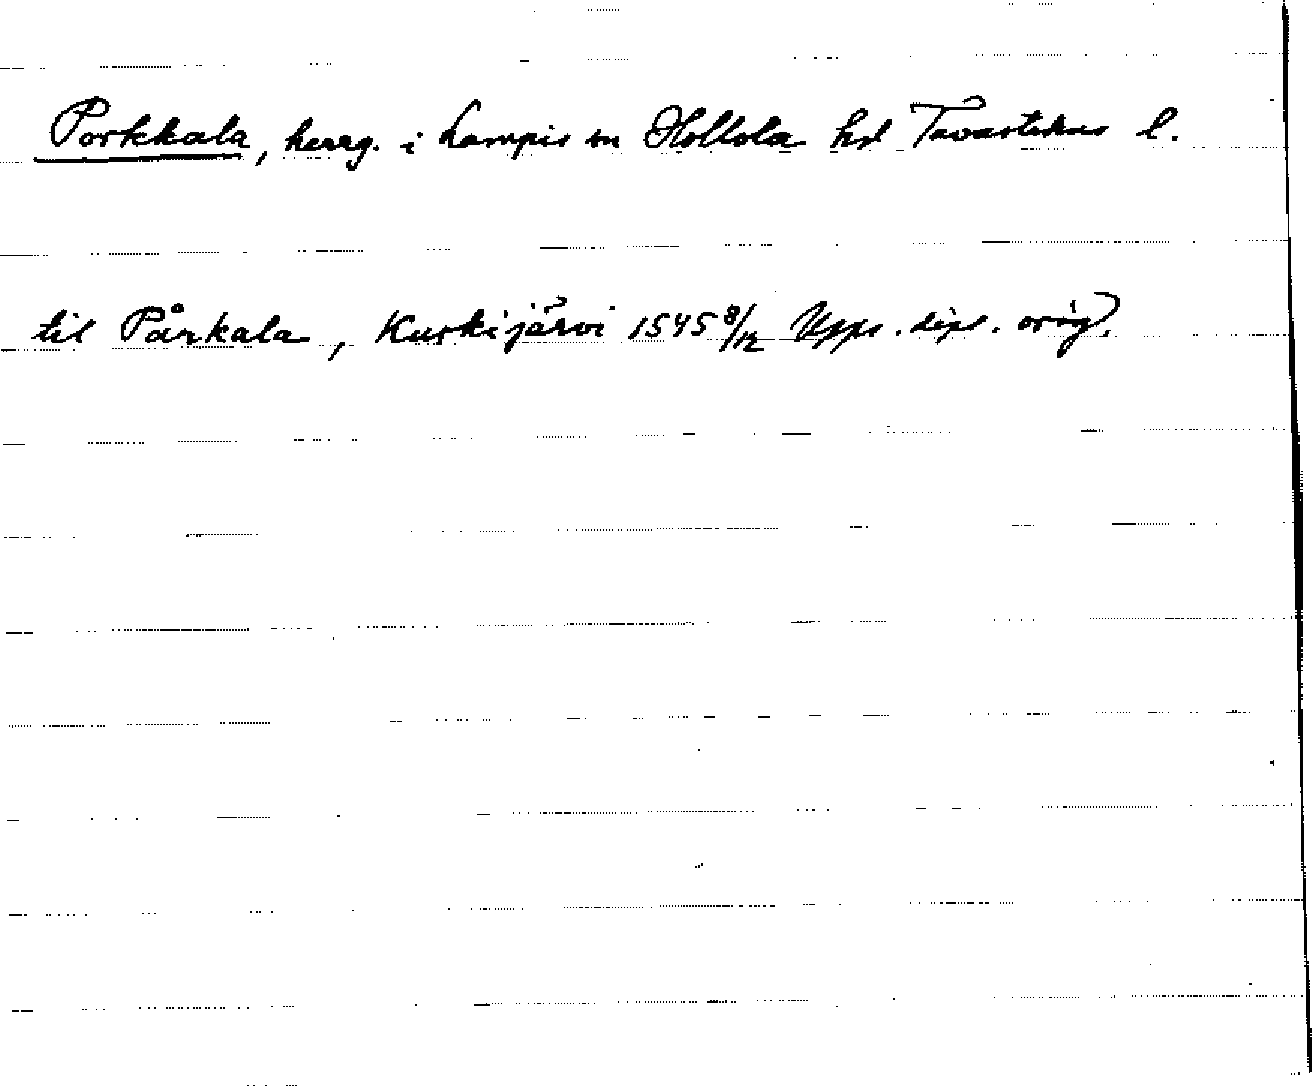 Porkkala, herrg. i Lampis sn Hollola hd Tavastehus l.
til Pårkala, Kurkijärvi 1545 8/12 Upps. dipl. orig.